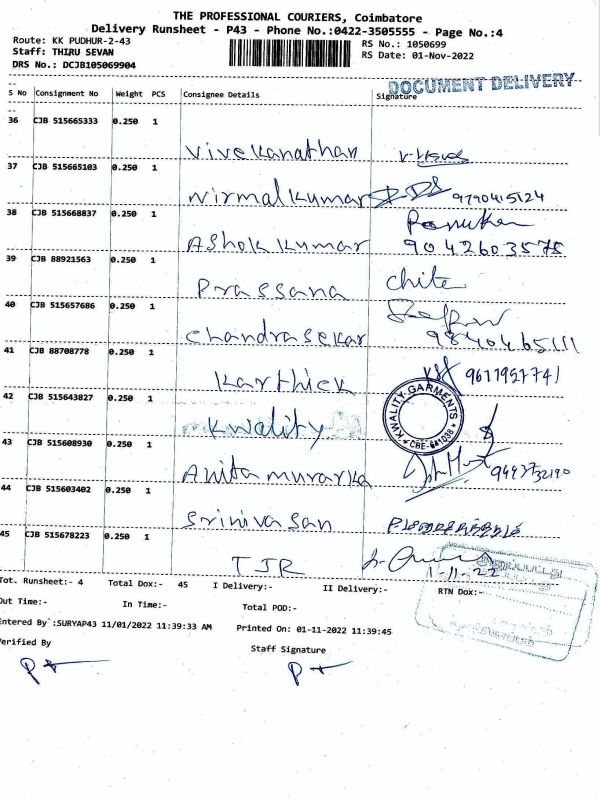 THE PROFESSIONAL COURIERS, Coimbatore
Delivery Runsheet - P43 - Phone No.:0422-3505555 - Page No.:4
Route: KK PUDHUR-2-43
RS No.: 1050699
Staff: THIRU SEVAN
RS Date: 01-Nov-2022
DRS No.: DCJB105069904
DOCUMENT DELIVERY
S No Consignment No Weight PCS Consignee Details Signature
36 CJB 515665333 0.250 1
Vivekanathan
37 CJB 515665103 0.250 1
Nirmal Kumar 9790415124
38 CJB 515668837 0.250 1
Ashok Kumar 9042603575
39 CJB 88921563 0.250 1
Prassana Chite
40 CJB 515657686 0.250 1
Chandrasekar 9840465111
41 CJB 88708778 0.250 1
Karthick 9611927741
42 CJB 515643827 0.250 1
Kwality KWALITY GARMENTS
43 CJB 515608930 0.250 1
Anita murarka
44 CJB 515603402 0.250 1
Srinivasan
45 CJB 515678223 0.250 1
TJR 1-11-22
Tot. Runsheet:- 4 Total Dox:- 45 I Delivery:- II Delivery:- RTN Dox:-
Out Time:- In Time:- Total POD:-
Entered By :SURYAP43 11/01/2022 11:39:33 AM Printed On: 01-11-2022 11:39:45
Verified By Staff Signature